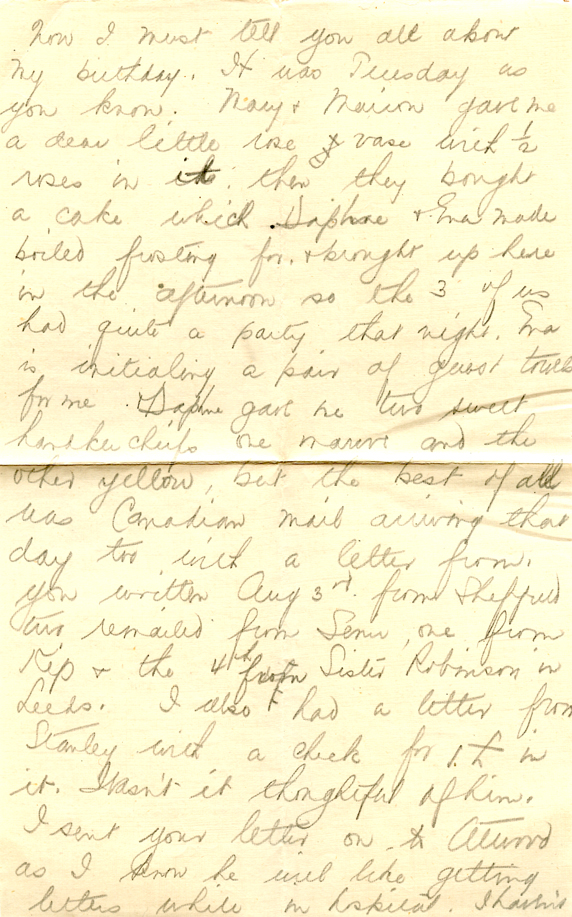 Now I must tell you all about
my birthday. It was Tuesday as
you know. Mary & Marion gave me
a dear little rose vase with ½
roses in it. then they bought
a cake which Daphne & Ena made
boiled frosting for, & brought up here
in the afternoon so the 3 of us
had quite a party that night. Ena
is initialing a pair of guest towels
for me & Daphne gave me two sweet
handkercheifs one mauve and the
other yellow, but the best of all
was Canadian mail arriving that
day too with a letter from
you written Aug 3rd. from Sheffield
two remailed from one from
Kip & the 4th from Sister Robinson in
Leeds. I also had a letter from
Stanley with a check for 1.£ in
it. Wasn't it thoughtful of him.
I sent your letter on to Attwood
as I know he will like getting
letters while in hospital. I